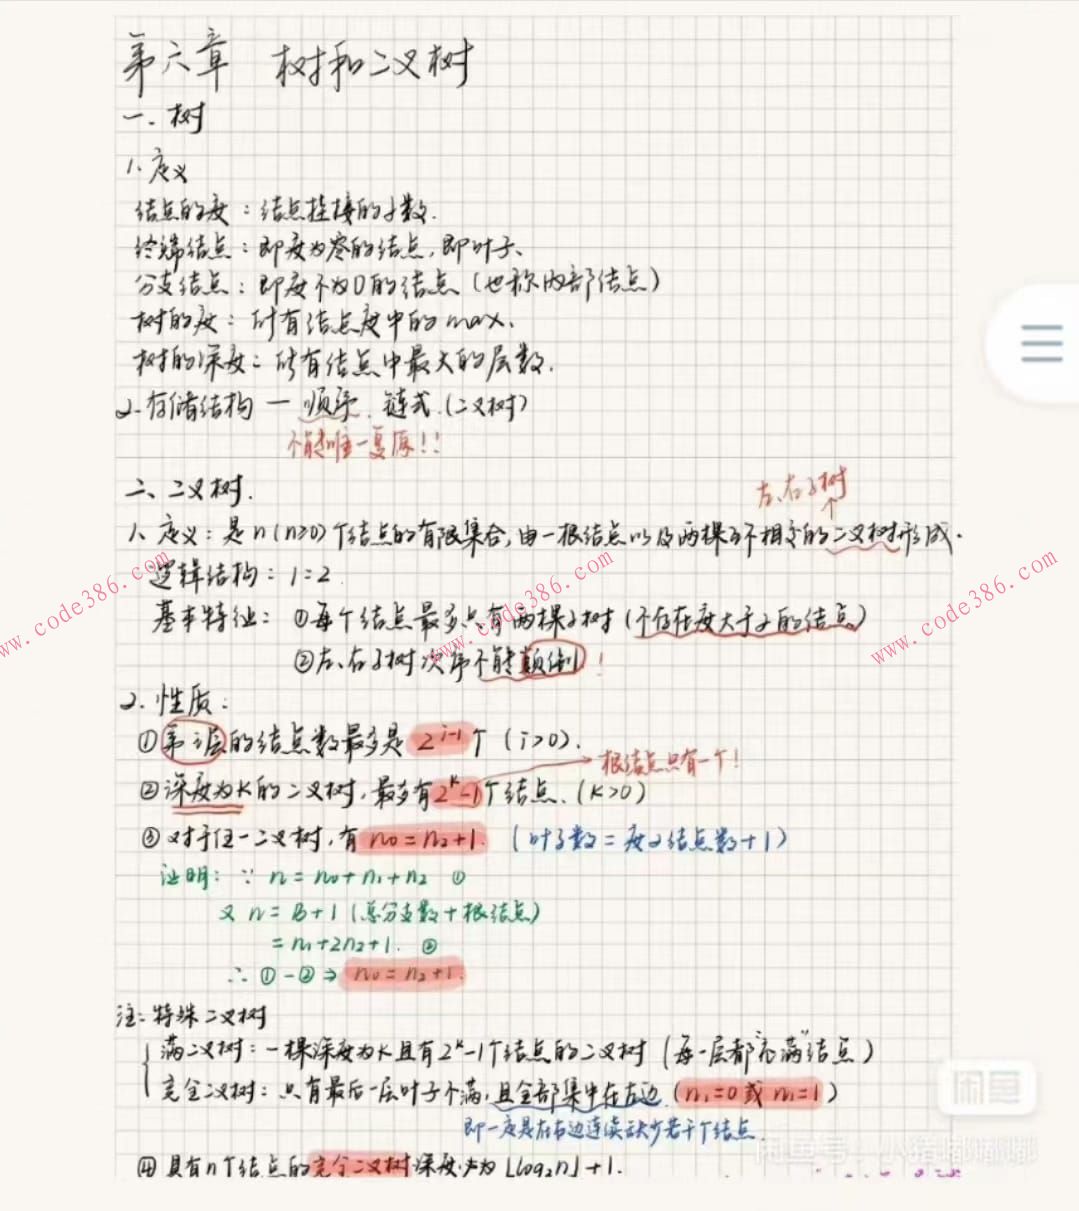 第六章 树和二叉树
一. 树
1. 定义
结点的度：结点挂接的子数.
终端结点：即度为零的结点,即叶子、
分支结点：即度不为0的结点（也称内部结点）
树的度：所有结点度中的max、
树的深度：所有结点中最大的层数.
2.存储结构 — 顺序、链式.(二叉树)
不能唯一复原!!
二、二叉树.
左、右子树
1. 定义：是n(n≥0)个结点的有限集合,由一根结点以及两棵互不相交的二叉树形成.
逻辑结构：1:2
基本特征：①每个结点最多只有两棵子树（不存在度大于2的结点）
②左、右子树次序不能颠倒!
2. 性质：
①第i层的结点数最多是 2^(i-1) 个 (i>0).
根结点只有一个!
②深度为K的二叉树,最多有2^K-1个结点、(K>0)
③对于任一二叉树,有 n₀=n₂+1. （叶子数=度2结点数+1）
证明：∵ n=n₀+n₁+n₂ ①
又 n=B+1（总分支数+根结点）
=n₁+2n₂+1. ②
∴ ①-② ⇒ n₀=n₂+1.
注：特殊二叉树
满二叉树：一棵深度为K且有2^K-1个结点的二叉树（每一层都"充满"结点）
完全二叉树：只有最后一层叶子不满,且全部集中在左边.（n₁=0或n₁=1）
即一定是在右边连续缺少若干个结点.
④具有n个结点的完全二叉树深度必为⌊log₂n⌋+1.
www.code386.com
www.code386.com
www.code386.com
闲鱼
闲鱼号：小猪嘟嘟嘟